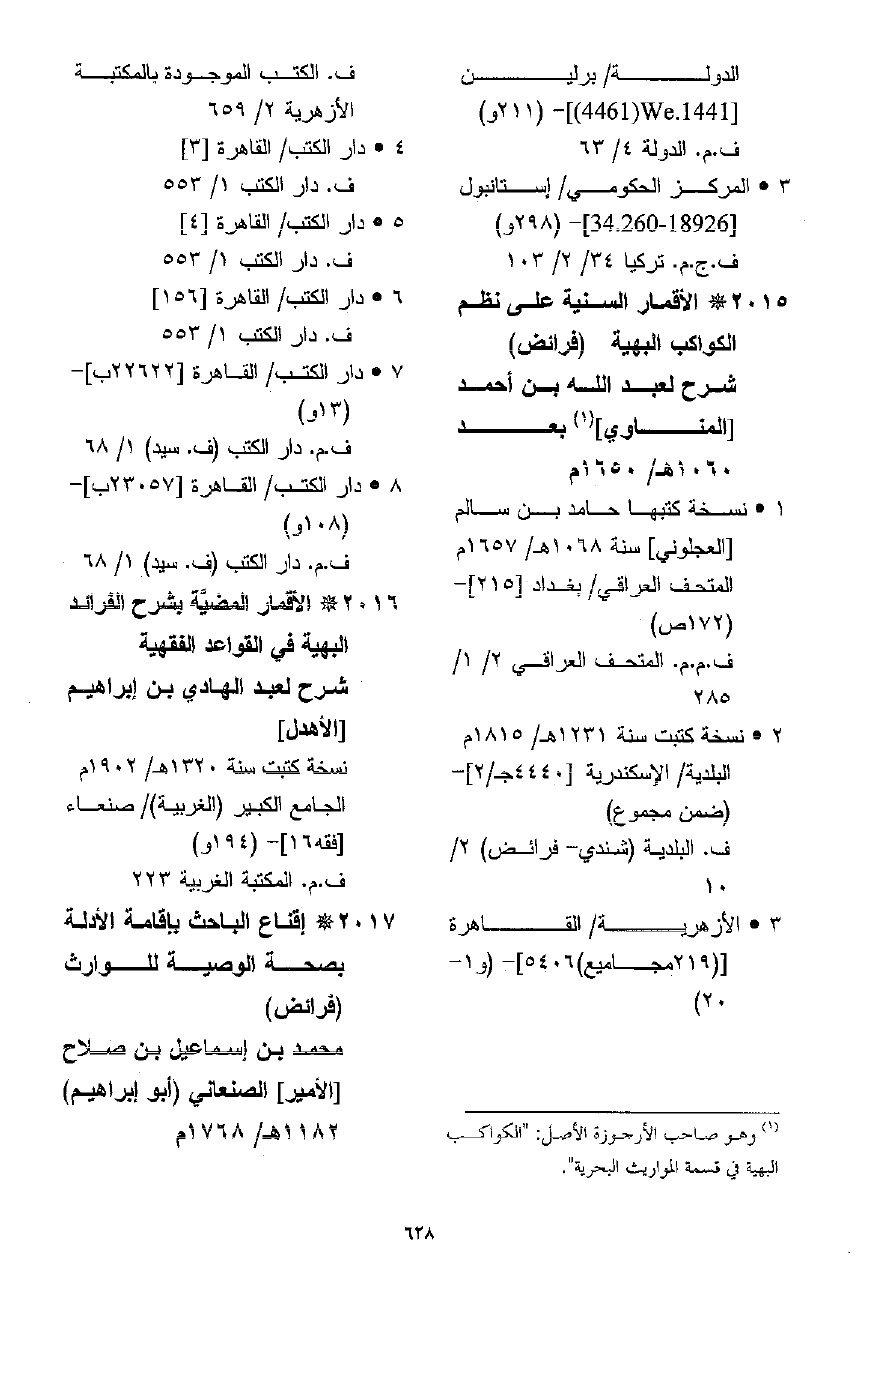 الدولة/ برلين
[We.1441(4461)]- (٢١١و)
ف.م. الدولة ٤/ ٦٣
٣ • المركز الحكومي/ إستانبول
[34.260-18926]- (٢٩٨و)
ف.ج.م. تركيا ٣٤/ ٢/ ١٠٣
٢٠١٥ * الأقمار السنية على نظم
الكواكب البهية (فرائض)
شرح لعبد الله بن أحمد
[المناوي](١) بعد
١٠٦٠هـ/ ١٦٥٠م
١ • نسخة كتبها حامد بن سالم
[العجلوني] سنة ١٠٦٨هـ/ ١٦٥٧م
المتحف العراقي/ بغداد [٢١٥]-
(١٧٢ص)
ف.م.م. المتحف العراقي ٢/ ١/
٢٨٥
٢ • نسخة كتبت سنة ١٢٣١هـ/ ١٨١٥م
البلدية/ الإسكندرية [٤٤٤٠جـ/٢]-
(ضمن مجموع)
ف. البلدية (شندي- فرائض) ٢/
١٠
٣ • الأزهرية/ القاهرة
[(٢١٩مجاميع)٥٤٠٦]- (و١-
٢٠)
(١) وهو صاحب الأرجوزة الأصل: "الكواكب
البهية في قسمة المواريث البحرية".
ف. الكتب الموجودة بالمكتبة
الأزهرية ٢/ ٦٥٩
٤ • دار الكتب/ القاهرة [٣]
ف. دار الكتب ١/ ٥٥٣
٥ • دار الكتب/ القاهرة [٤]
ف. دار الكتب ١/ ٥٥٣
٦ • دار الكتب/ القاهرة [١٥٦]
ف. دار الكتب ١/ ٥٥٣
٧ • دار الكتب/ القاهرة [٢٢٦٢٢ب]-
(١٣و)
ف.م. دار الكتب (ف. سيد) ١/ ٦٨
٨ • دار الكتب/ القاهرة [٢٣٠٥٧ب]-
(١٠٨و)
ف.م. دار الكتب (ف. سيد) ١/ ٦٨
٢٠١٦ * الأقمار المضيَّة بشرح الفرائد
البهية في القواعد الفقهية
شرح لعبد الهادي بن إبراهيم
[الأهدل]
نسخة كتبت سنة ١٣٢٠هـ/ ١٩٠٢م
الجامع الكبير (الغربية)/ صنعاء
[فقه١٦]- (١٩٤و)
ف.م. المكتبة الغربية ٢٢٣
٢٠١٧ * إقناع الباحث بإقامة الأدلة
بصحة الوصية للوارث
(فرائض)
محمد بن إسماعيل بن صلاح
[الأمير] الصنعاني (أبو إبراهيم)
١١٨٢هـ/ ١٧٦٨م
٦٢٨